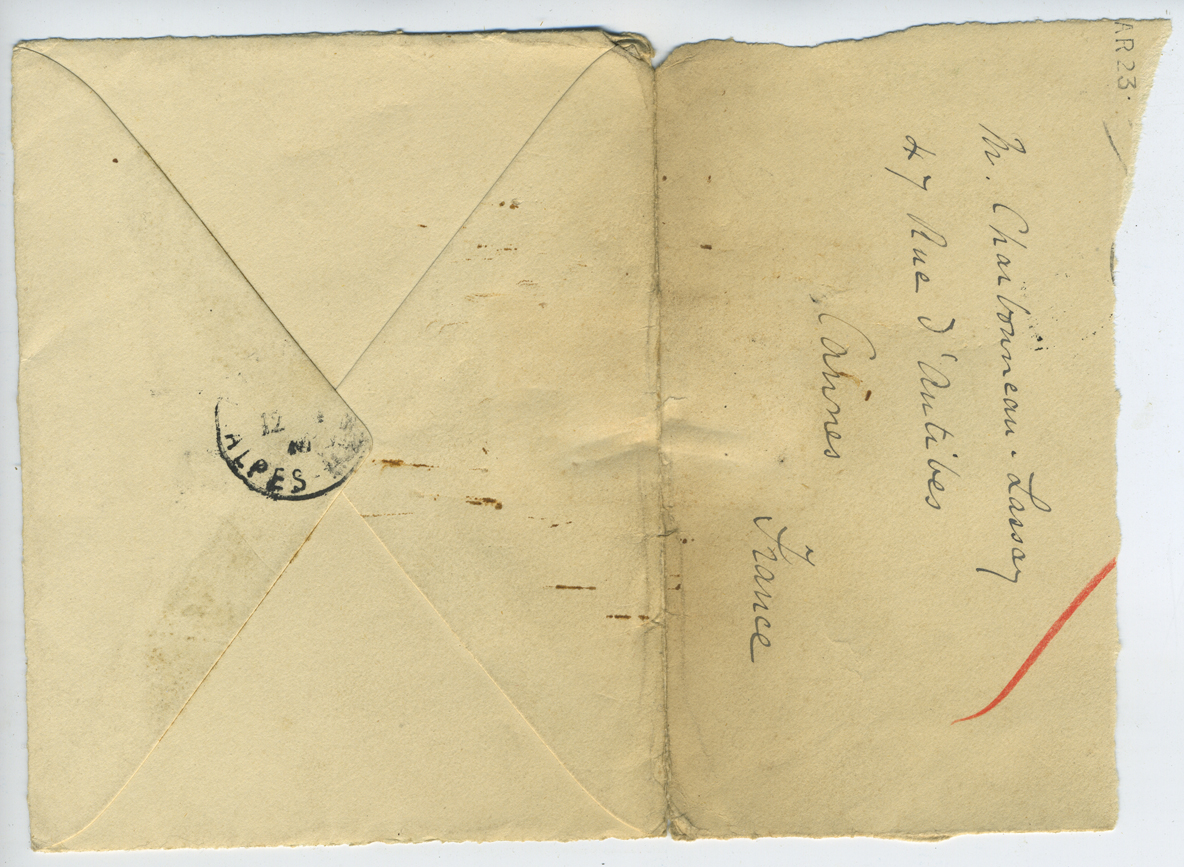 AR 23
M. Charbonneau-Lassay
47 Rue d'Antibes
Cannes
France
12
ALPES